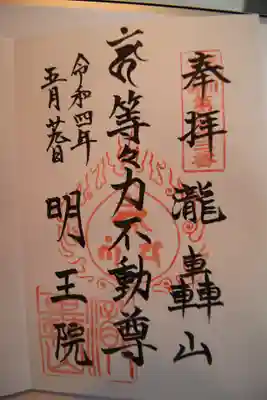 奉拝
瀧轟山
等々力不動尊
令和四年
五月
明王院